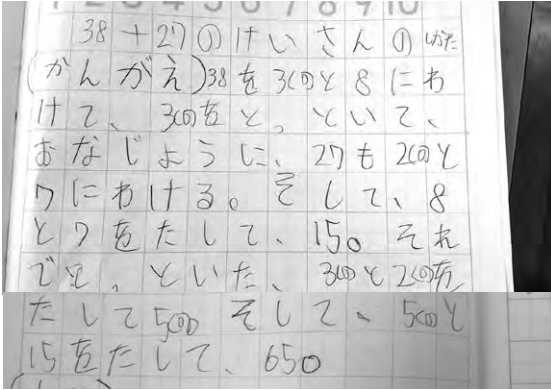 1 2 3 4 5 6 7 8 9 10
38+27のけいさんのしかた
(かんがえ)38を30と8にわ
けて、30をと。といて、
おなじように、27も20と
7にわける。そして、8
と7をたして、15。それ
でと。といた、30と20を、
たして50。そして、50と
15をたして、65。